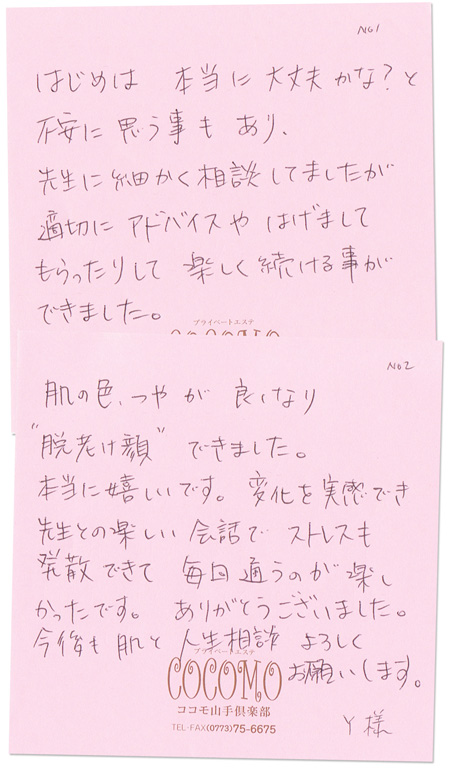 No1
はじめは 本当に大丈夫かな?と
不安に思う事もあり、
先生に細かく相談してましたが
適切にアドバイスや はげまして
もらったりして 楽しく続ける事が
できました。
プライベートエステ
COCOMO
No2
肌の色、つやが 良くなり
"脱老け顔" できました。
本当に嬉しいです。変化を実感でき
先生との楽しい会話で ストレスも
発散できて 毎回通うのが楽し
かったです。 ありがとうございました。
今後も 肌と 人生相談 よろしく
お願いします。
プライベートエステ
COCOMO
ココモ山手倶楽部
TEL・FAX(0773)75-6675
Y様